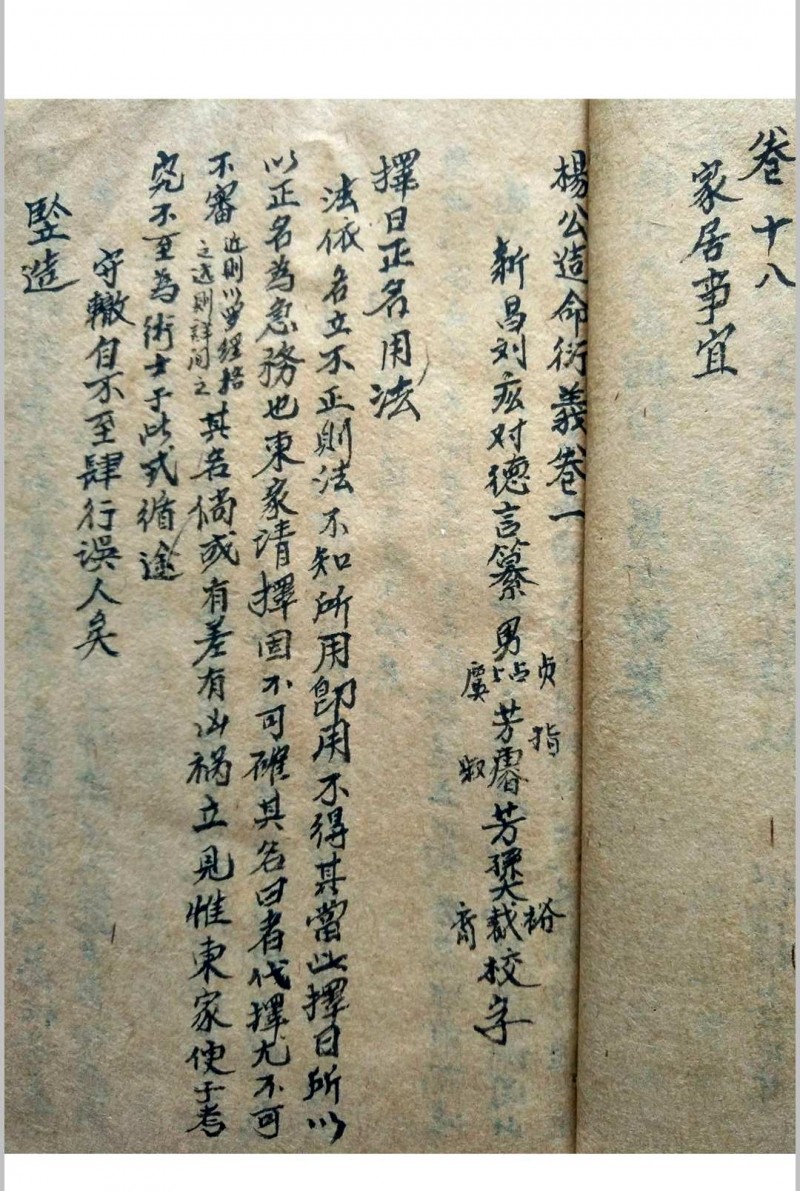 卷十八
家居事宜
楊公造命衍義卷一
新昌刘 对德言纂男 贞 虞 芳 指 淑 芳 裕 裔 裁校字
擇日正名用法
法依名立不正則法不知所用卽用不得其當此擇日所以
以正名為急務也東家请擇固不可確其名曰者代擇尤不可
不審近則以罗經格之远則詳问之其名倘或有差有凶祸立見惟東家使于考
究不至為術士于此或循途
守轍自不至肆行误人矣
竪造